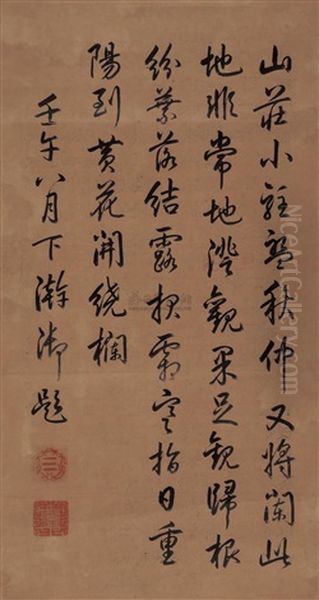 山莊小駐盤秋仲又將闌此
地非常地澄觀果足觀歸根
紛葉落結露霜寒指日重
陽到黃花開繞欄
壬午八月下澣御題
NiceArtGallery.com